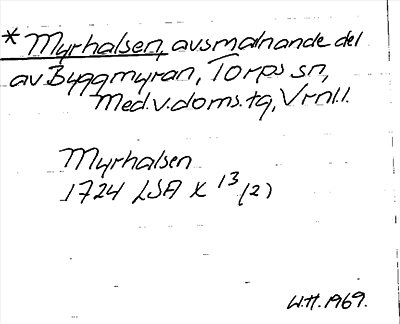 * Myrhalsen, avsmalnande del
av Byggmyran, Torps sn,
Med.v.doms.tg, Vrnl.l.
Myrhalsen
1724 LSA X 13 (2)
W.H. 1969.